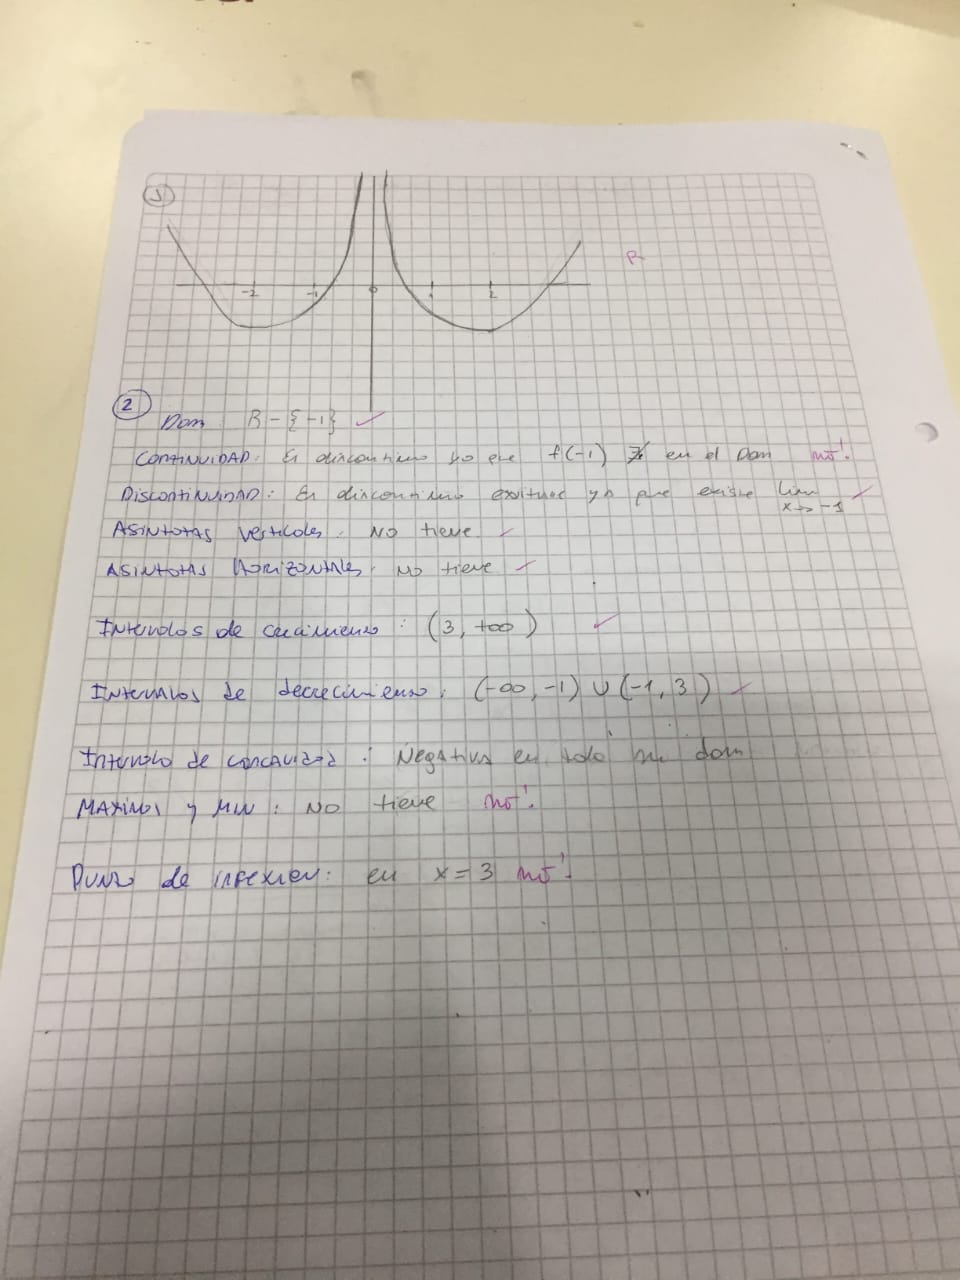 1
R
-2 -1 0 1 2
2
Dom R - {-1} ✓
CONTINUIDAD: Es discontinuo ya que f(-1) ∄ en el Dom no!
DISCONTINUIDAD: Es discontinuo evitable ya que existe lim x→-1 ✓
ASINTOTAS verticales: NO tiene ✓
ASINTOTAS Horizontales: NO tiene ✓
INTERVALOS de crecimiento: (3, +∞) ✓
INTERVALOS de decrecimiento: (-∞, -1) ∪ (-1, 3) ✓
INTERVALO de concavidad: Negativa en todo su dom
MAXIMOS y MIN: NO tiene no!
PUNTO de inflexion: en x = 3 no!